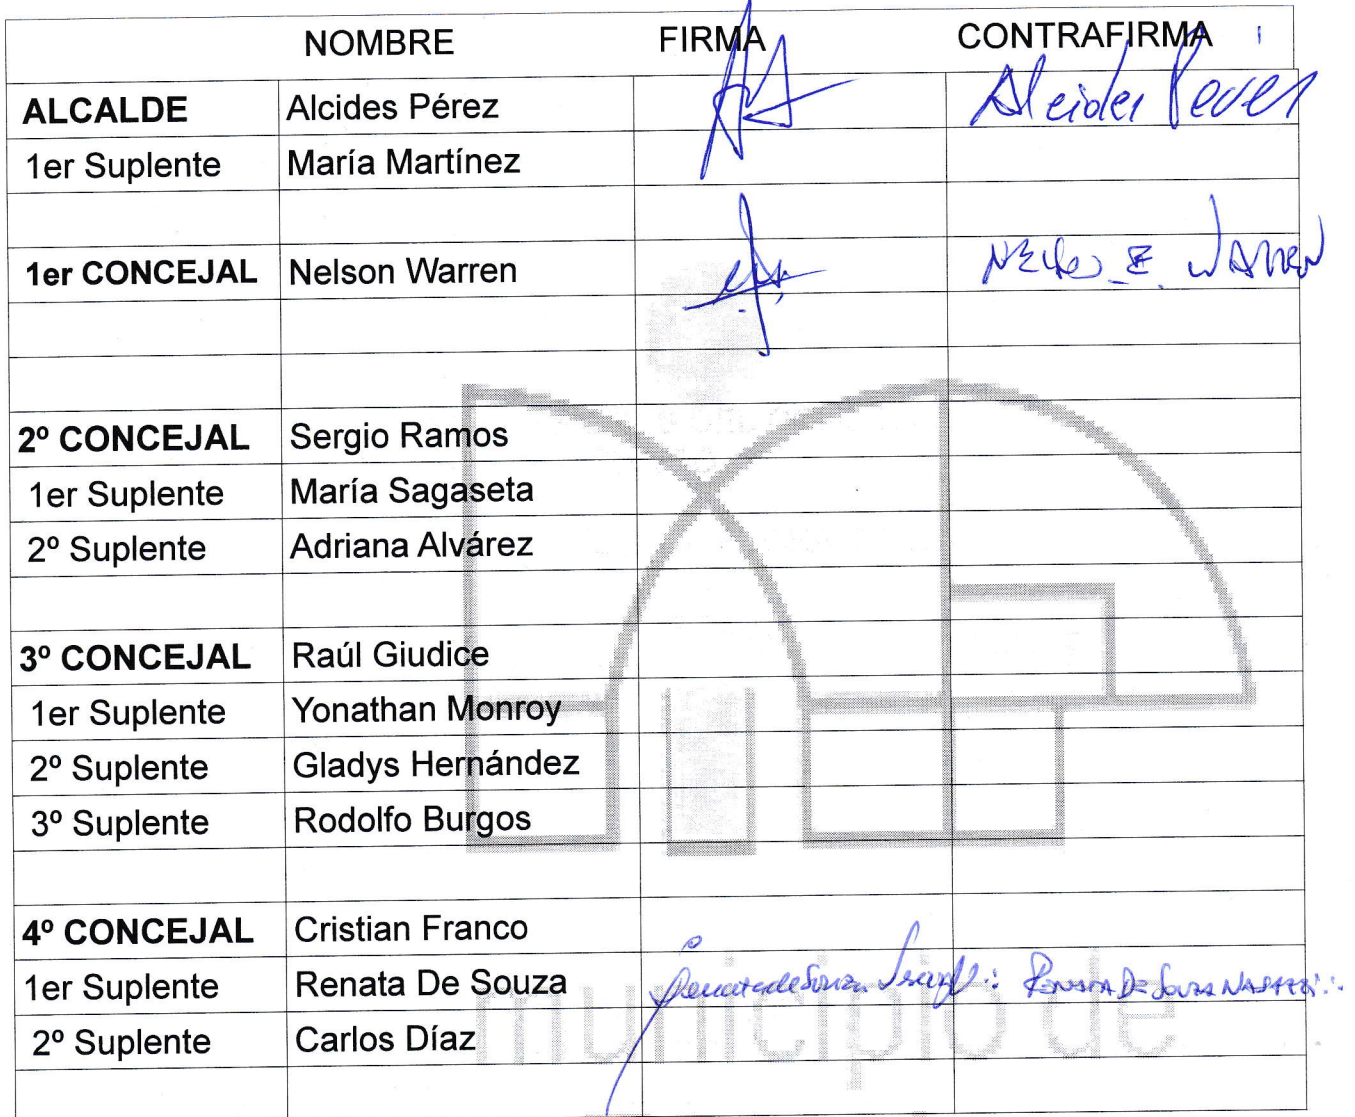 NOMBRE FIRMA CONTRAFIRMA
ALCALDE Alcides Pérez Alcides Perez
1er Suplente María Martínez
1er CONCEJAL Nelson Warren Nelson E. WARREN
2º CONCEJAL Sergio Ramos
1er Suplente María Sagaseta
2º Suplente Adriana Alvárez
3º CONCEJAL Raúl Giudice
1er Suplente Yonathan Monroy
2º Suplente Gladys Hernández
3º Suplente Rodolfo Burgos
4º CONCEJAL Cristian Franco
1er Suplente Renata De Souza Renata de Souza RENATA DE SOUZA
2º Suplente Carlos Díaz
municipio de